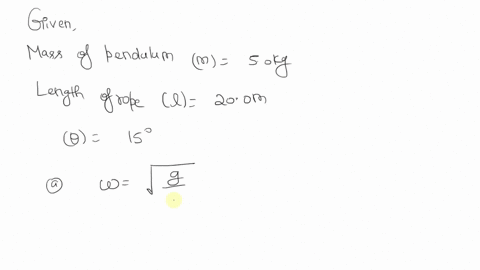 Given,
Mass of pendulum (m) = 50kg
Length of rope (l) = 20.0m
(θ) = 15°
ⓐ ω = √g